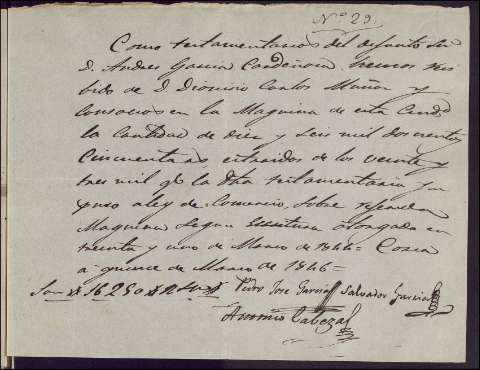 Nº 29.
Como testamentarios del difunto Sor
D. Andres Garcia Cardeñosa hemos reci
bido de D. Dionisio Carlos Muñoz y
Consocios en la Maquina de esta Ciud.
la Cantidad de diez y seis mil doscientos
Cincuenta rs estraidos de los veinte y
tres mil qe la dha testamentaria
puso a ley de Comercio, sobre referida
Maquina segun Escritura otorgada en
treinta y uno de Marzo de 1846=
a quince de Marzo de 1846=
Son 16250 Pedro Jose Garcia Salvador Garcia
Antonio Cabeza